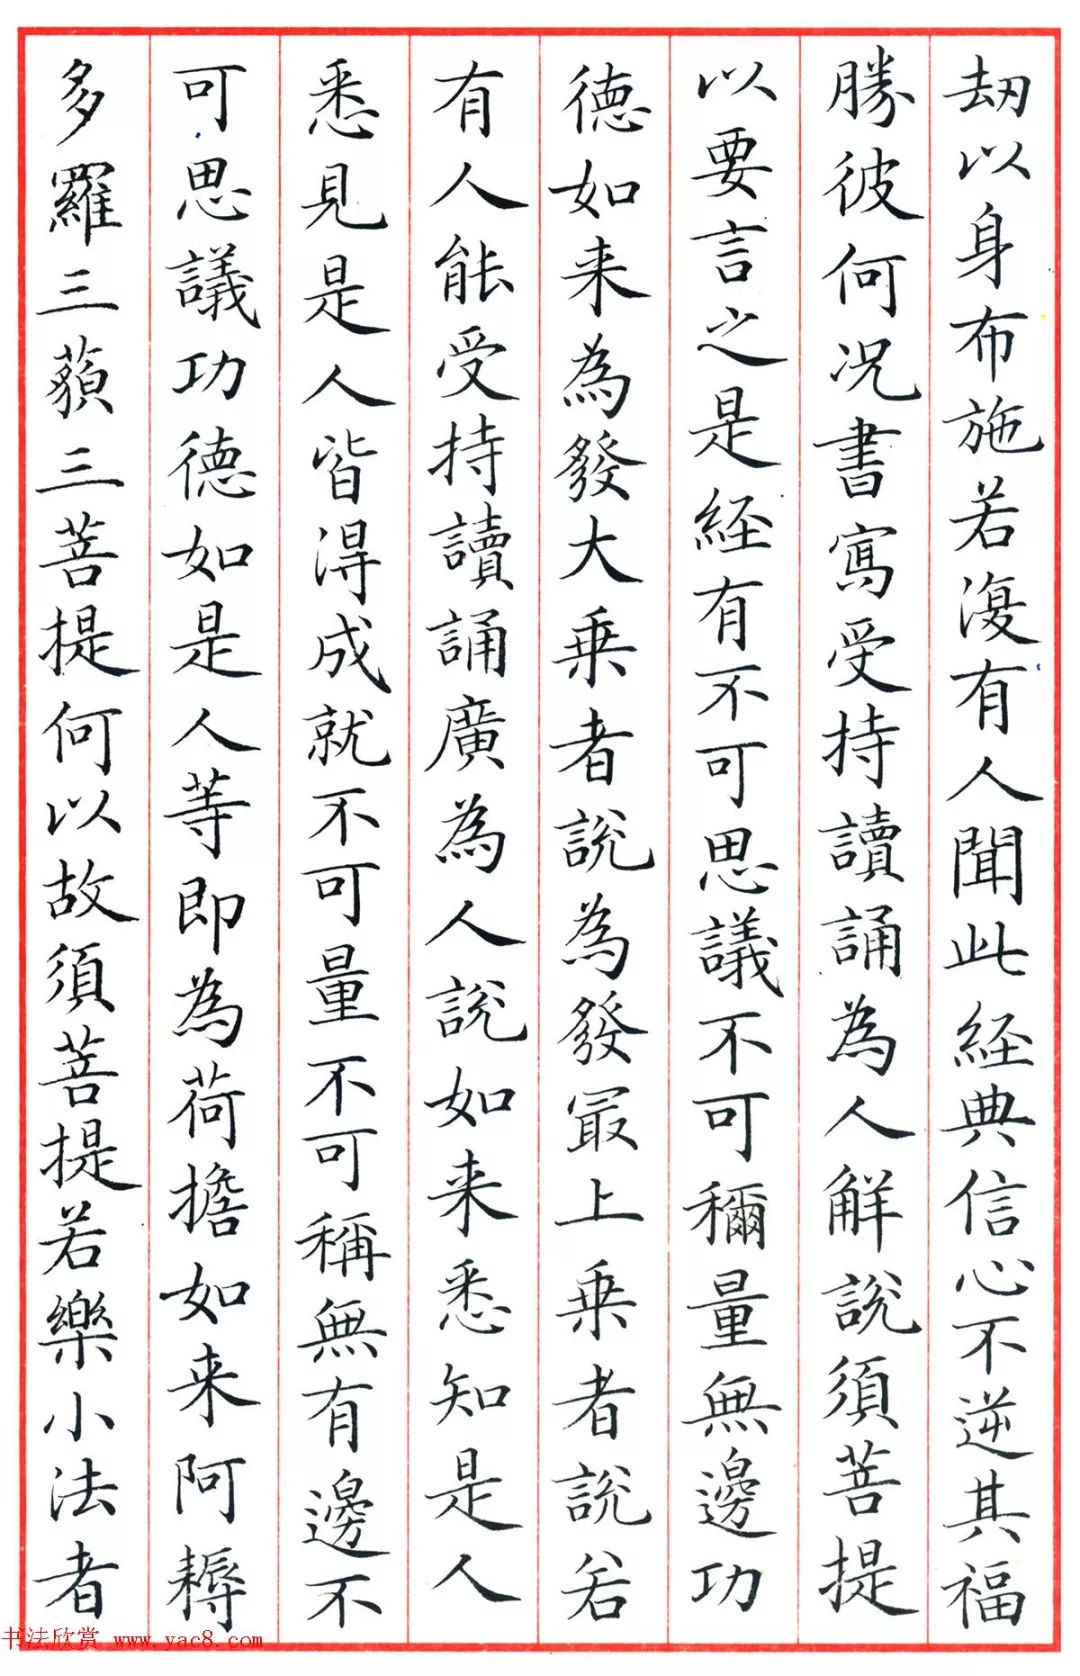 劫以身布施若復有人聞此經典信心不逆其福
勝彼何况書寫受持讀誦為人解説須菩提
以要言之是經有不可思議不可稱量無邊功
德如来為發大乗者説為發最上乗者説若
有人能受持讀誦廣為人説如来悉知是人
悉見是人皆得成就不可量不可稱無有邊不
可思議功德如是人等即為荷擔如来阿耨
多羅三藐三菩提何以故須菩提若樂小法者
书法欣赏 www.yac8.com